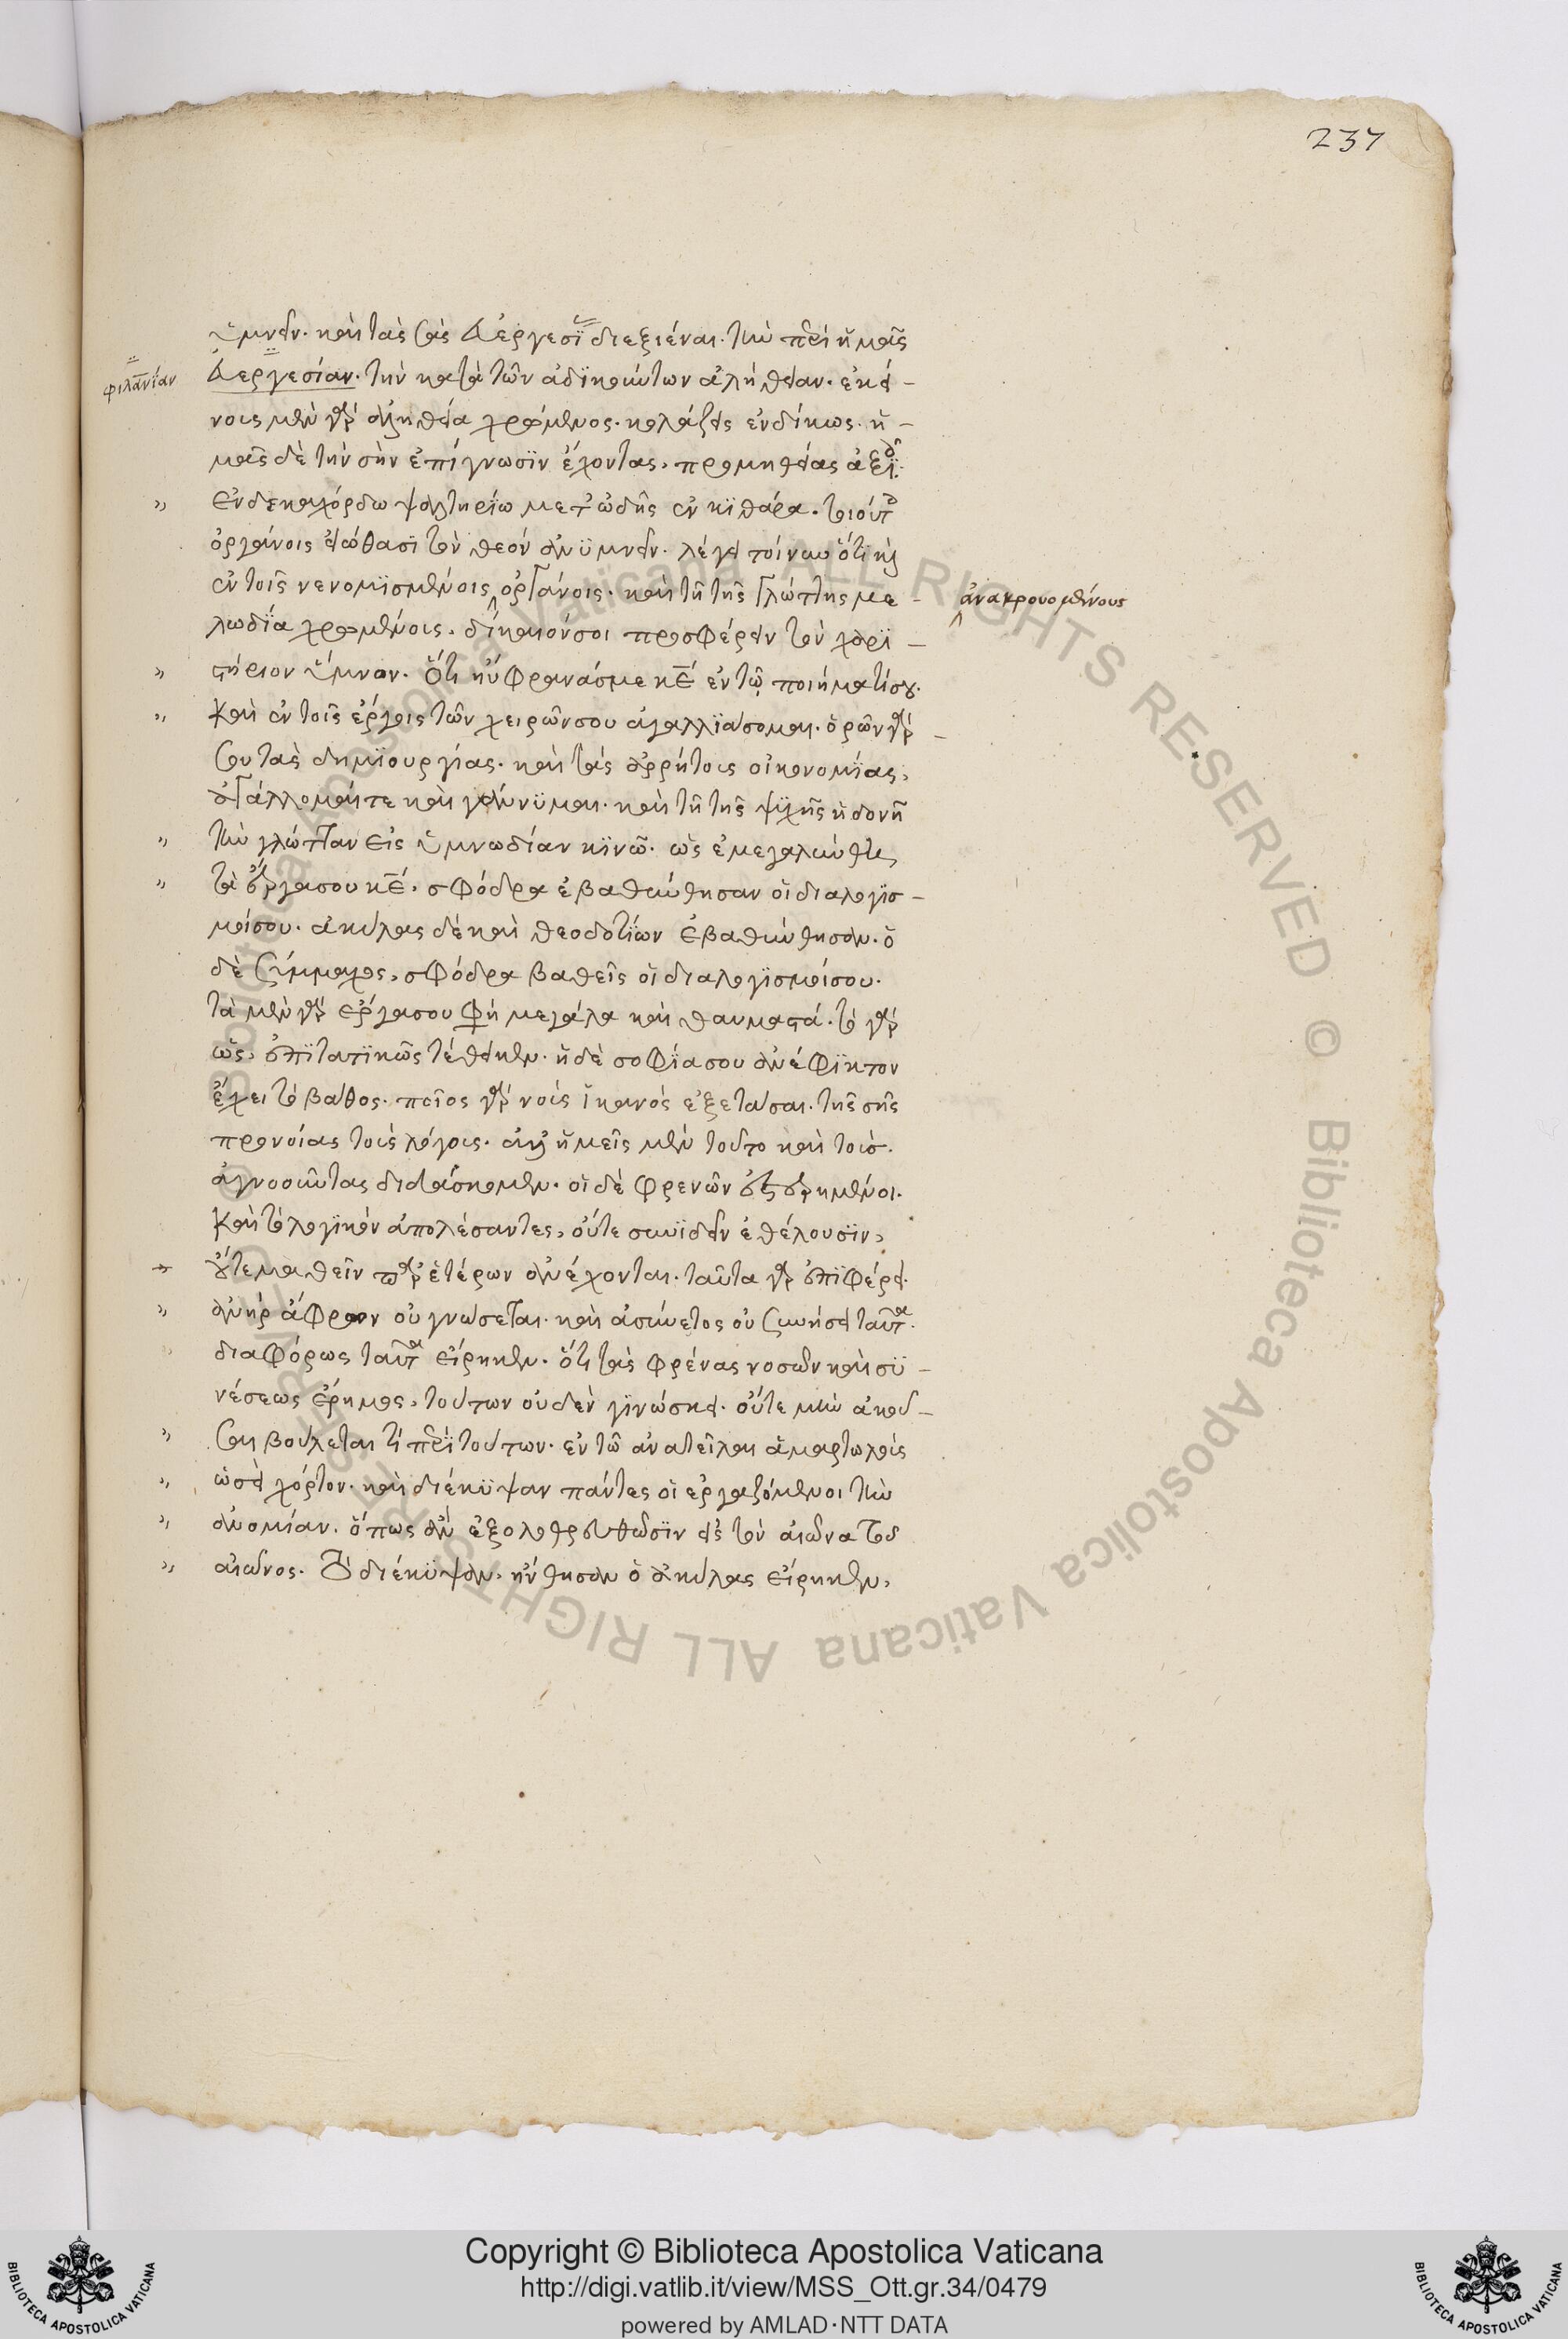 237
ὕμνειν. καὶ τὰς σὰς εὐεργεσί διεξιέναι. τὴν περὶ ἡμᾶς
φιλανίαν
εὐεργεσίαν. τὴν κατὰ τῶν ἀδικούντων ἀλήθειαν. ἐκεί-
νοις μὲν γὰρ ἀληθεία χρώμενος. κολάζεις ἐνδίκως. ἡ-
μᾶς δὲ τὴν σὴν ἐπίγνωσϊν ἔχοντας, προμηθείας ἀξιοῖ.
" Ἐν δεκαχόρδω ψαλτηρίω μετ' ὠδῆς ἐν κϊθάρα. τοιούτ
ὀργάνοις εἰώθασϊ τὸν θεόν ἀνϋμνεῖν. λέγει τοίνυν ὅτι καὶ
ἐν τοῖς νενομϊσμένοις ὀργάνοις. καὶ τῆ τῆς γλώττης με-
ἀνακρουομένους
λωδία χρωμένοις. δίκαιόν σοι προσφέρειν τὸν χαρϊ-
" στήριον ὕμνον. Ὅτι ηὔφρανάς με κε ἐν τῶ ποιήματί σου.
" Καὶ ἐν τοῖς ἔργοις τῶν χειρῶν σου ἀγαλλϊάσομαι. ὁρῶν γάρ
σου τὰς δημϊουργίας. καὶ τὰς ἀρρήτους οἰκονομίας,
ἀγάλλομαί τε καὶ γάννϋμαι. καὶ τῆ τῆς ψϋχῆς ἡδονῆ
" τὴν γλῶτταν εἰς ὑμνωδίαν κϊνῶ. ὡς ἐμεγαλύνθη
" τὰ ἔργα σου κε. σφόδρα ἐβαθύνθησαν οἱ διαλογϊσ-
μοί σου. ἀκύλας δὲ καὶ θεοδοτίων ἐβαθύνθησαν. ὁ
δὲ Σύμμαχος, σφόδρα βαθεῖς οἱ διαλογϊσμοί σου.
τὰ μὲν γὰρ ἔργα σου φη μεγάλα καὶ θαυμαστά. τὸ γὰρ
ὡς, ἐπϊτατϊκῶς τέθεικεν. ἡ δὲ σοφία σου ἀνέφϊκτον
ἔχει τὸ βάθος. ποῖος γὰρ νοῦς ἱκανός ἐξετάσαι. τῆς σῆς
προνοίας τοὺς λόγους. ἀλλ ἡμεῖς μὲν τοῦτο καὶ τοὺσ.
ἀγνοοῦντας διδάσκομεν. οἱ δὲ φρενῶν ἐξηρημένοι.
Καὶ τὸ λογϊκόν ἀπολέσαντες, οὔτε συνϊδεῖν ἐθέλουσϊν,
οὔτε μαθεῖν παρ' ἑτέρων ἀνέχονται. ταῦτα γὰρ ἐπϊφέρει.
" ἀνήρ ἄφρων οὐ γνώσεται. καὶ ἀσύνετος οὐ συνήσει ταῦτα.
διαφόρως ταῦτα εἴρηκεν. ὅτι τὰς φρένας νοσῶν καὶ σϋ-
νέσεως ἔρημος, τούτων οὐδὲν γϊνώσκει. οὔτε μὴν ἀκοῦ-
" σαι βούλεταί τι περὶ τούτων. ἐν τῶ ἀνατεῖλαι ἁμαρτωλοὺς
" ὡσεὶ χόρτον. καὶ διέκϋψαν πάντες οἱ ἐργαζόμενοι τὴν
" ἀνομίαν. ὅπως ἂν ἐξολοθρευθῶσϊν εἰς τὸν αἰῶνα τοῦ
" αἰῶνος. Τὸ διέκϋψαν, ἤνθησαν ὁ ἀκύλας εἴρηκεν,
Copyright © Biblioteca Apostolica Vaticana
http://digi.vatlib.it/view/MSS_Ott.gr.34/0479
powered by AMLAD·NTT DATA